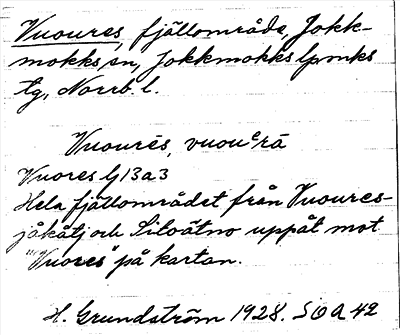 Vuoures, fjällområde, Jokk-
mokks sn, Jokkmokks lpmks
tg, Norrb. l.
Vuourés, vuouᵉrá
Vuores G13a3
Hela fjällområdet från Vuoures-
jåkåtj och Sitoätno uppåt mot
"Vuores" på kartan.
H. Grundström 1928. SOA 42